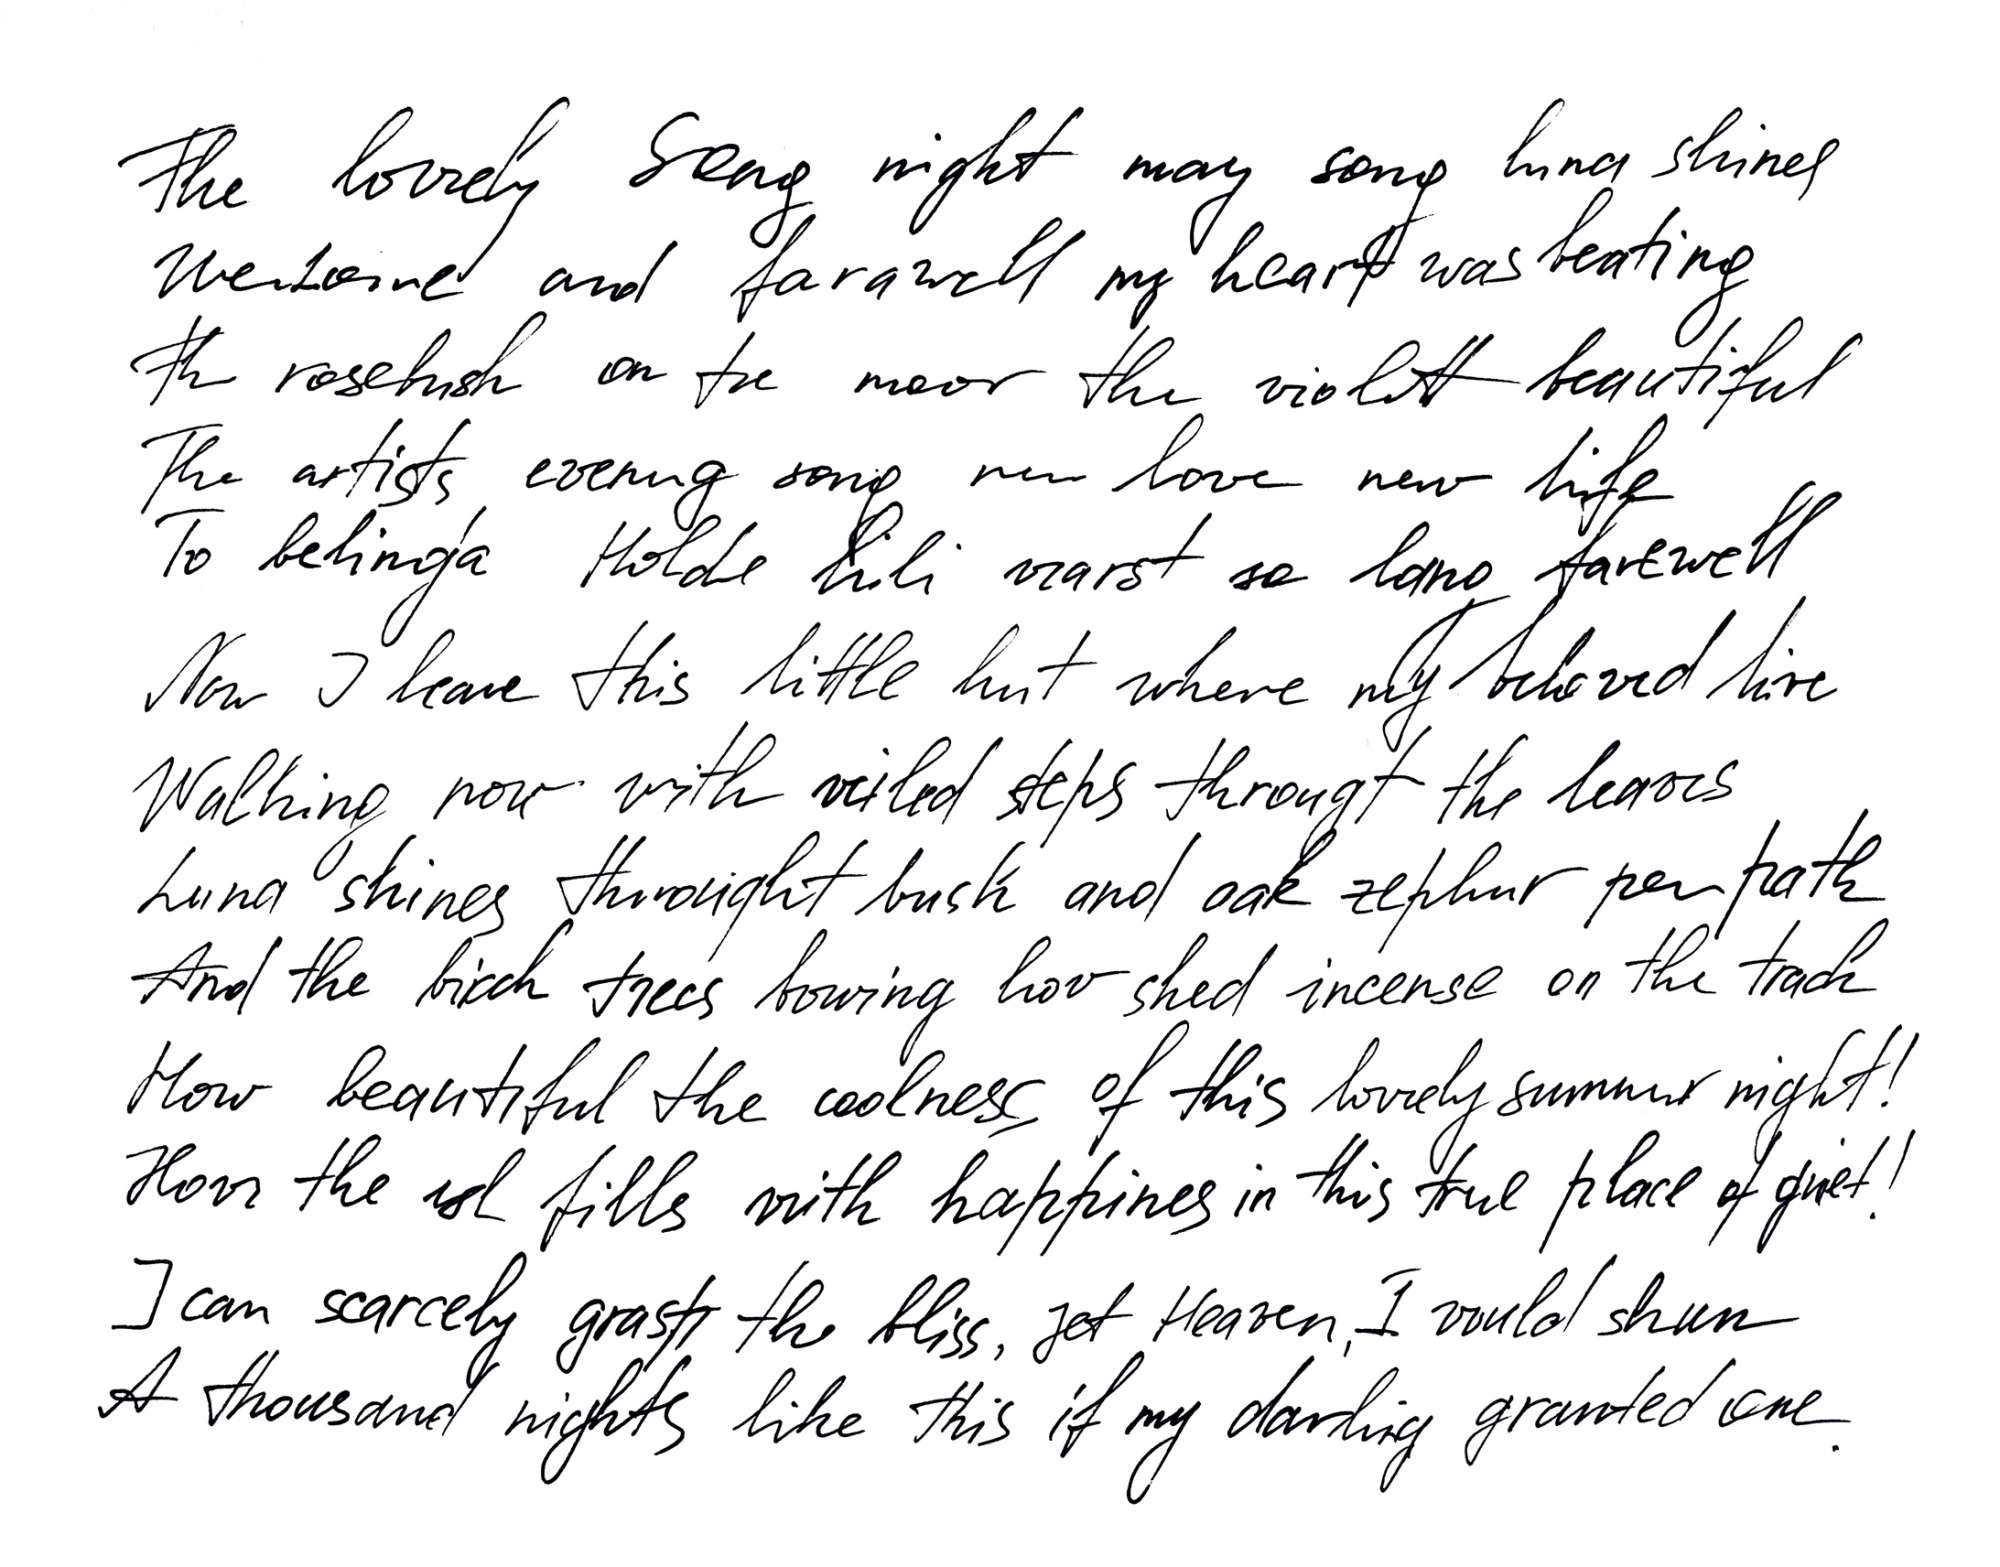 The lovely Song night may song luna shines
Welcome and farawell my heart was beating
Th rosebush on the moor the violett beautiful
The artists evening song new love new life
To belinda Holde Lili warst so lang farewell
Now I leave this little hut where my beloved live
Walking now with veiled steps througt the leaves
Luna shines throught bush and oak zephur per path
And the birch trees bowing low shed incense on the track
How beautiful the coolness of this lovely summer night!
How the fills with happines in this true place of quiet!
I can scarcely grasp the bliss, yet Heaven, I would shun
A thousand nights like this if my darling granted one.